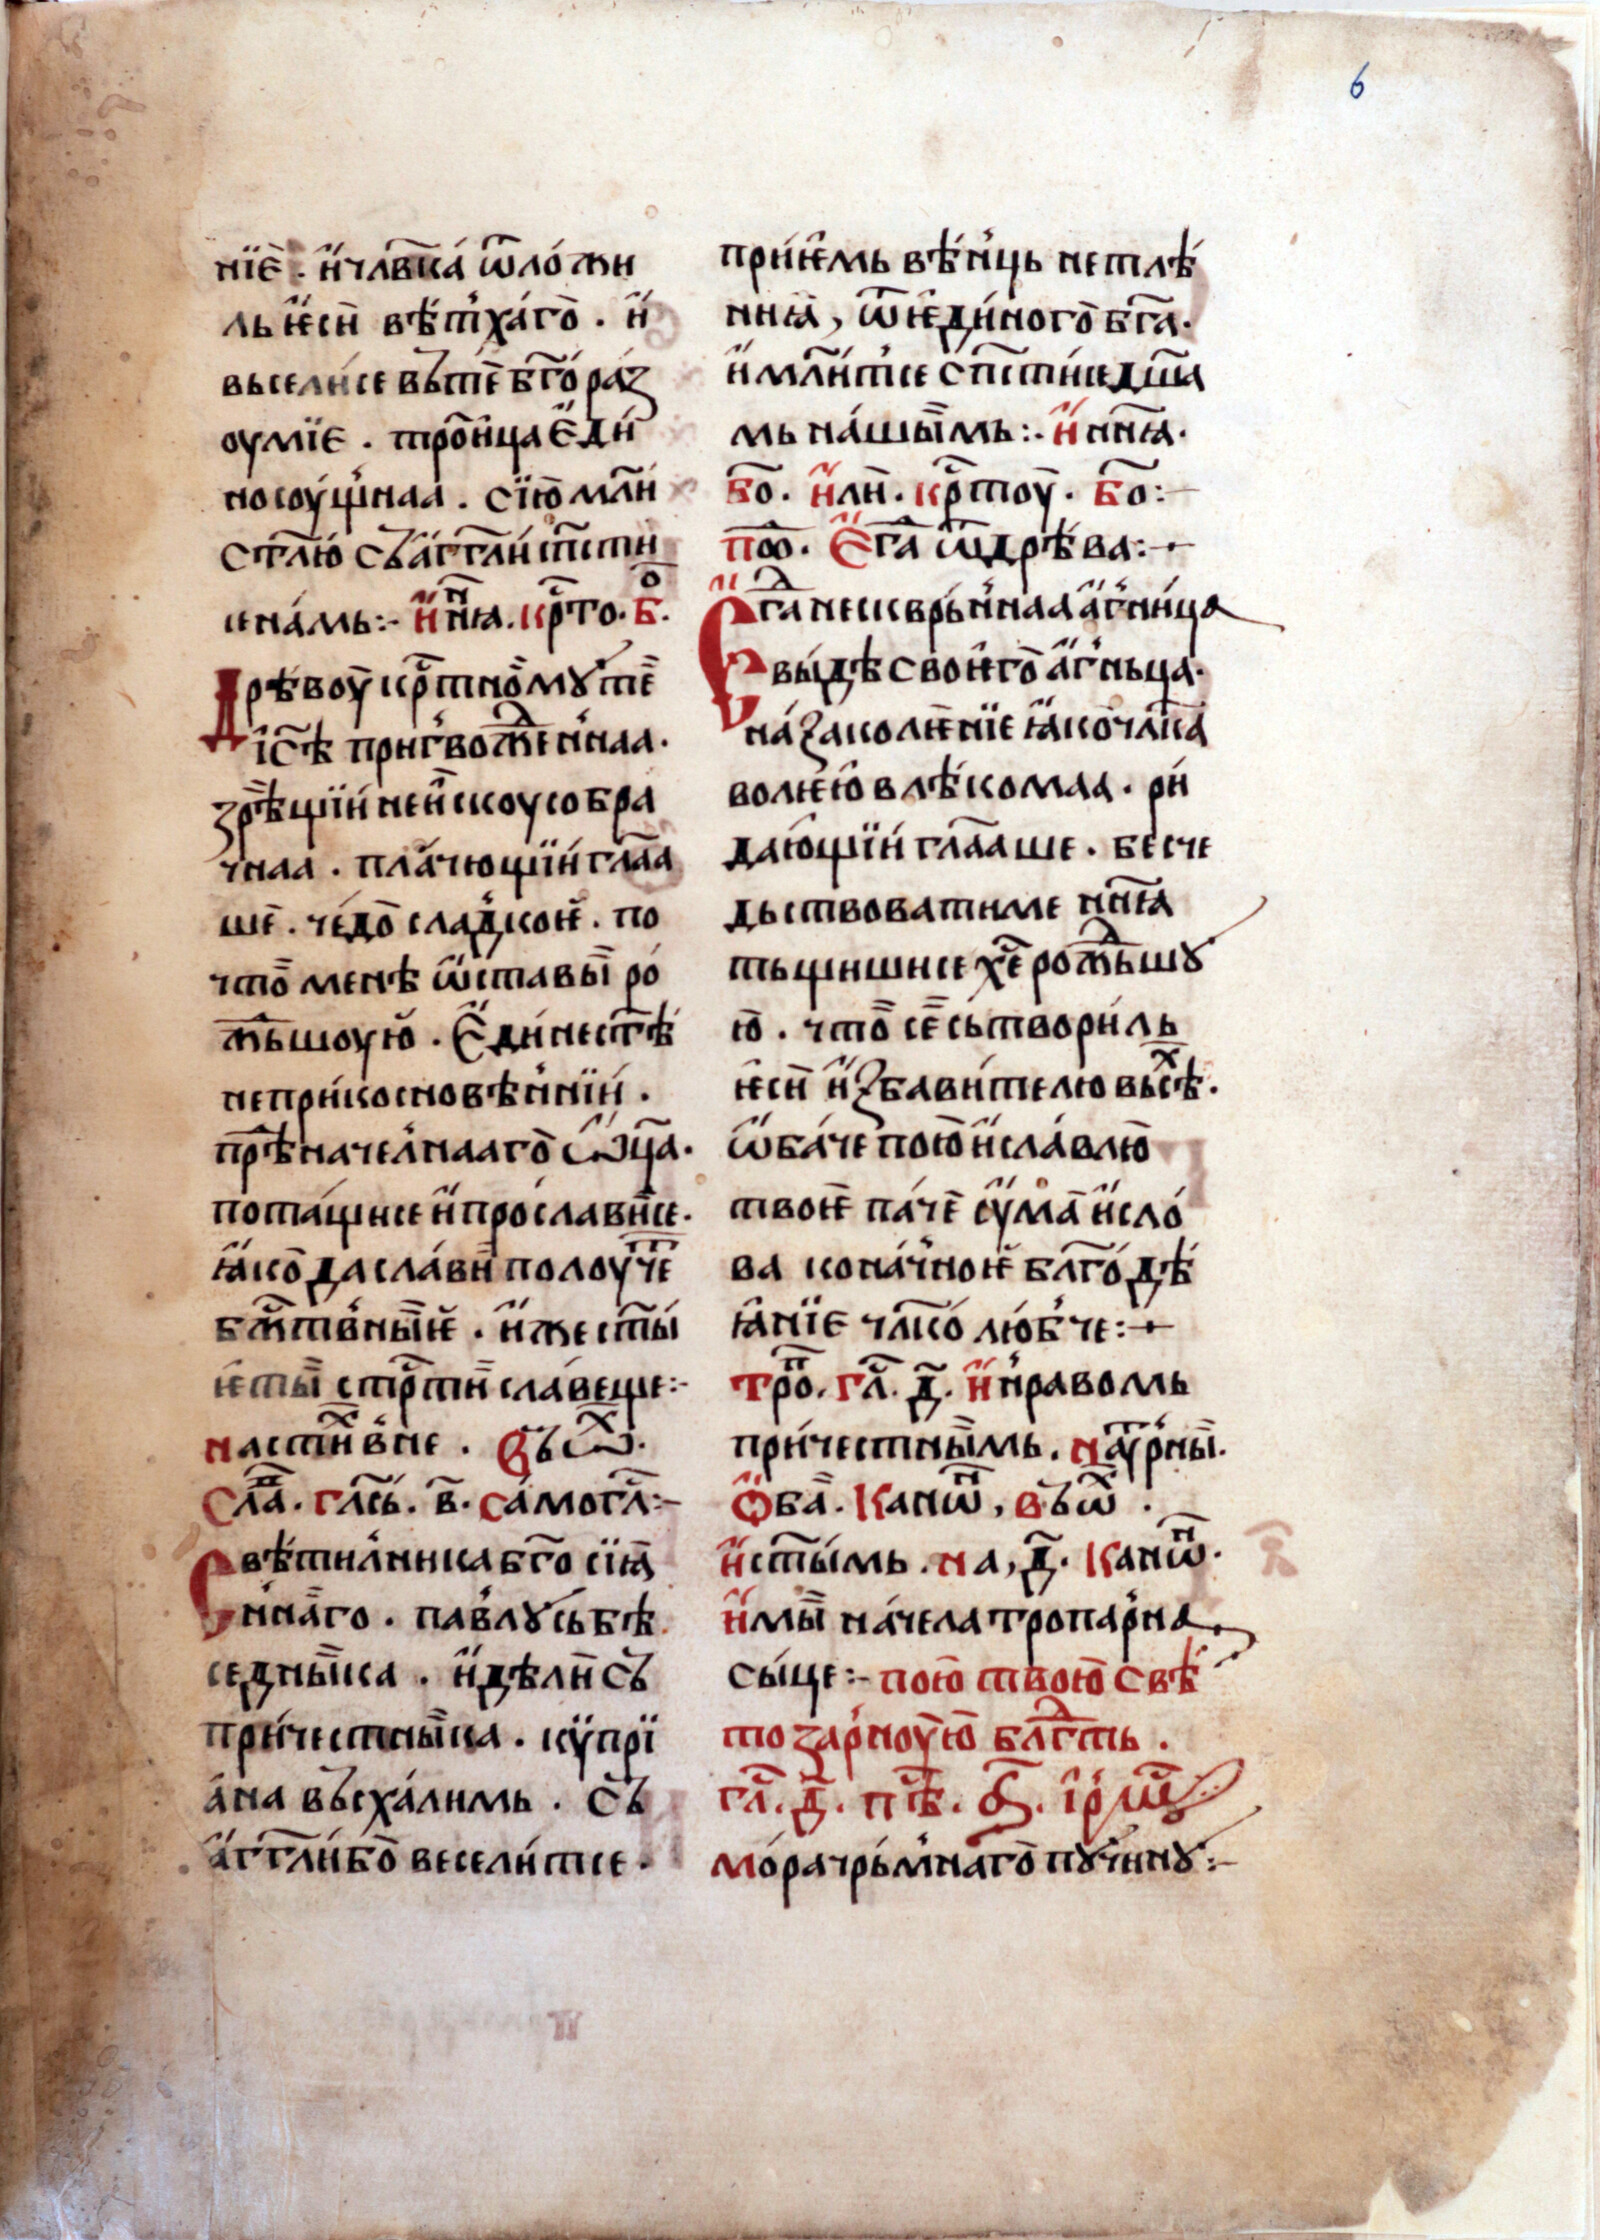 6
нїе҆ . и҆ чл҃вка́ ѿло́жи
ль ѥ҆си̑ вѣ́тха́го . и҆
вьсели́се въте҆ бг҃о́ра́з
оумїе . тро́и҆ца е҆ди́
носоу́щ҆наа . сїю̀ мл҃и́
ст҃лю̀ съ а҆гг҃ли сп҃сти
се на́мь :- и҆ нн҃ꙗ . кр҃то . б҃о .
Дрѣвоу̀ кр҃тно́мꙋ те
і҆с҃ѣ пригвож҃де́н҆наа .
зре́щїи́ неи́скоусобра
чнаа . пла́чющїи́ гл҃аа
ше . че́до сла́дкоѥ . по
что̀ мене ѡ҆ставы́ ро́
ж҃ьшоую̀ . е҆ди́не ст҃ѣ
неприкоснове́н҆нїи .
прѣ҃наче́л҆нааго ѡ҆ц҃а .
пота́щисе и҆ просла́висе .
ꙗ҆ко да сла́ви полоуче҃
бж҃тв҆ны́ѥ . и҆же ст҃ы́
ѥ҆ ты́ стр҃ти сла́веще :-
на сти҃х в҆не . Въ ѡ҃х .
Сла҃ . гл҃сь . в҃ . самогл҃ :-
Свѣ́тил҆ника бг҃осїꙗ̀
н҆на́го . па́влꙋ сьбѣ
седны́ка . и҆ дѣли съ
при́честны́ка . кѵ̈прї
а́на въсхва́лимь . съ
а҆гг҃ли бо̀ весели́тсе .
прие́мь вѣ́н҆ць нетлѣ́
ниꙗ̀ , ѿ ѥ҆ди́ного бг҃а .
и҆ мл҃и́тсе сп҃сти́се дш҃а
мь на́шы́мь :- и҆ нн҃ꙗ .
б҃о . и҆ли̑ . кр҃тоу̀ . б҃о :-
по҃о . Е҆гд҃а ѿ дрѣ́ва :-
Е҆гд҃а нескврьн҆наа а҆г҆ни́ца
вы́дѣ своѥ҆го̀ а҆г҆ньца .
на́ заколѥ́нїе ꙗ҆ко чл҃ка́
волѥ́ю влѣ́комаа . ри́
даю́щїи́ гл҃ааше . бесче
дьствоватиме нн҃ꙗ
тьщишисе хе҃ рожд҃ьшꙋ
ю̀ . что̀ сѐ сьтвори́ль
ѥ҆си̑ и҆збави́телю вьсѣх .
ѡ҆ба́че пою̀ и҆ сла́влю̀
твоѥ҆ па́че оу҆ма̀ и҆ сло́
ва кона́ч҆ноѥ бл҃го́дѣ́
ꙗ҆нїе чл҃ко́лю́б҆че :-
тро҃п . гл҃ . д҃ . и҆ нраволь
при́честны́мь . на оу҆т҃р҆ны́ .
Ѻ҆ба̀ . Канѡ҃н , въ ѡ҃х .
и҆ ст҃ы́мь . на , д҃ . канѡ҃н .
и҆мы́ на́чела тропар҆на
сы́це :- пою̀ твою̀ свѣ́
тоза́р҆ноу́ю̀ бл҃гдть .
гл҃ . д҃ . пѣ҃ . а҃ . і҆р҆мѡ҃с .
мо́ра чрь́м҆на́го пꙋчи́нꙋ :-